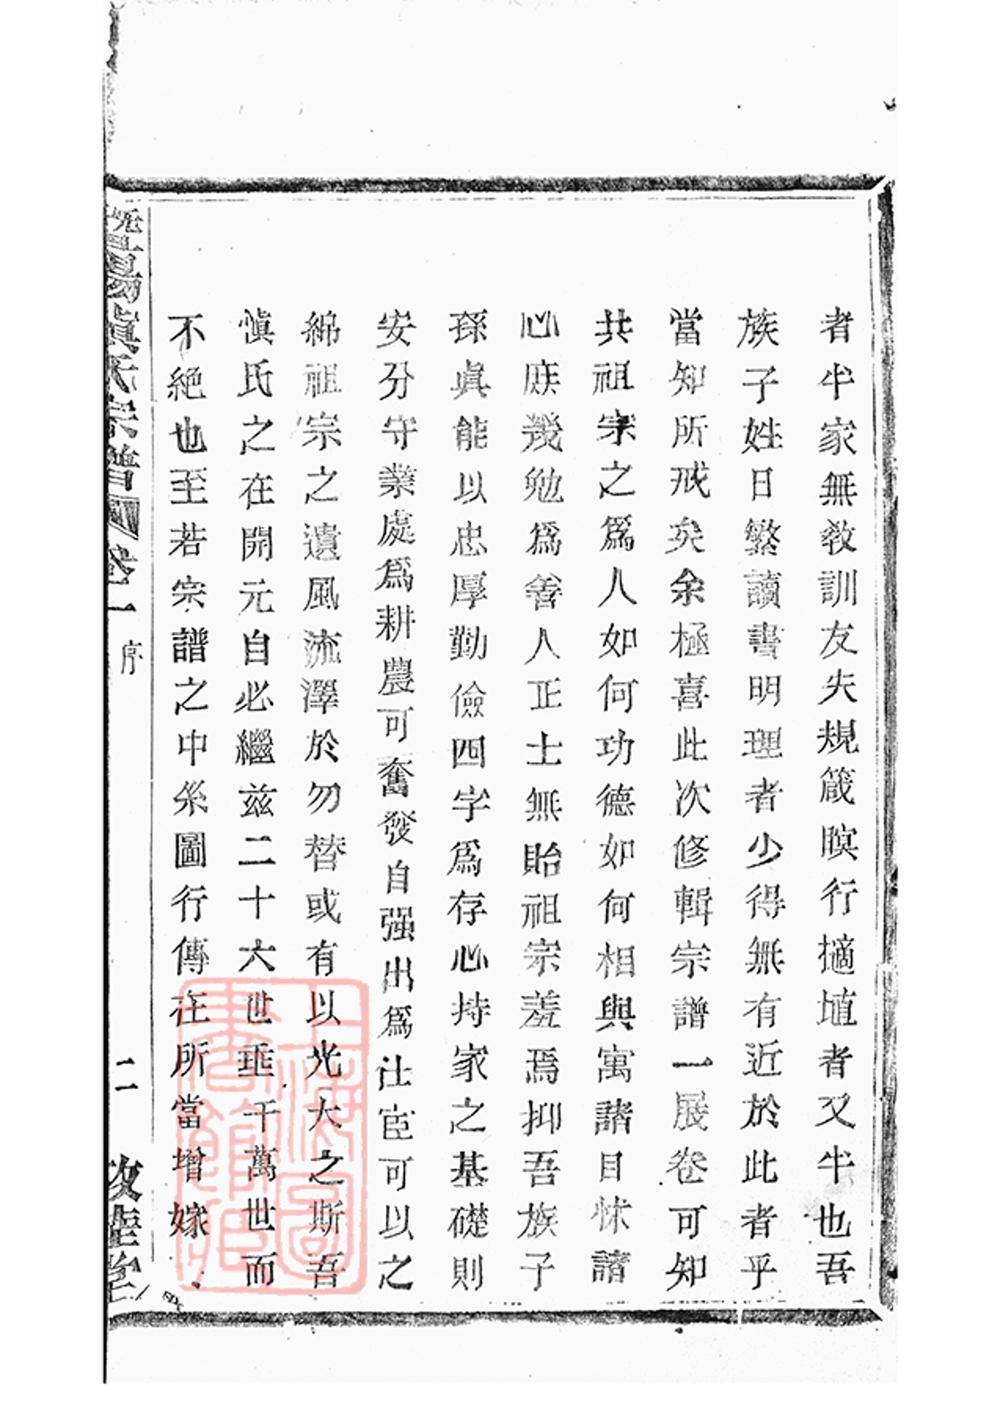 者半家無敎訓友夫規箴瞑行擿埴者又半也吾
族子姓日繁讀書明理者少得無有近於此者乎
當知所戒矣余極喜此次修輯宗譜一展卷可知
共祖宗之爲人如何功德如何相與寓諸目怵諸
心庶幾勉爲善人正士無貽祖宗羞焉抑吾族子
孫眞能以忠厚勤儉四字爲存心持家之基礎則
安分守業處爲耕農可奮發自强出爲仕宦可以之
綿祖宗之遺風流澤於勿替或有以光大之斯吾
愼氏之在開元自必繼兹二十六世垂千萬世而
不絕也至若宗譜之中系圖行傳在所當增嫁
陽愼氏宗譜 卷一 序 二
上海圖書館藏